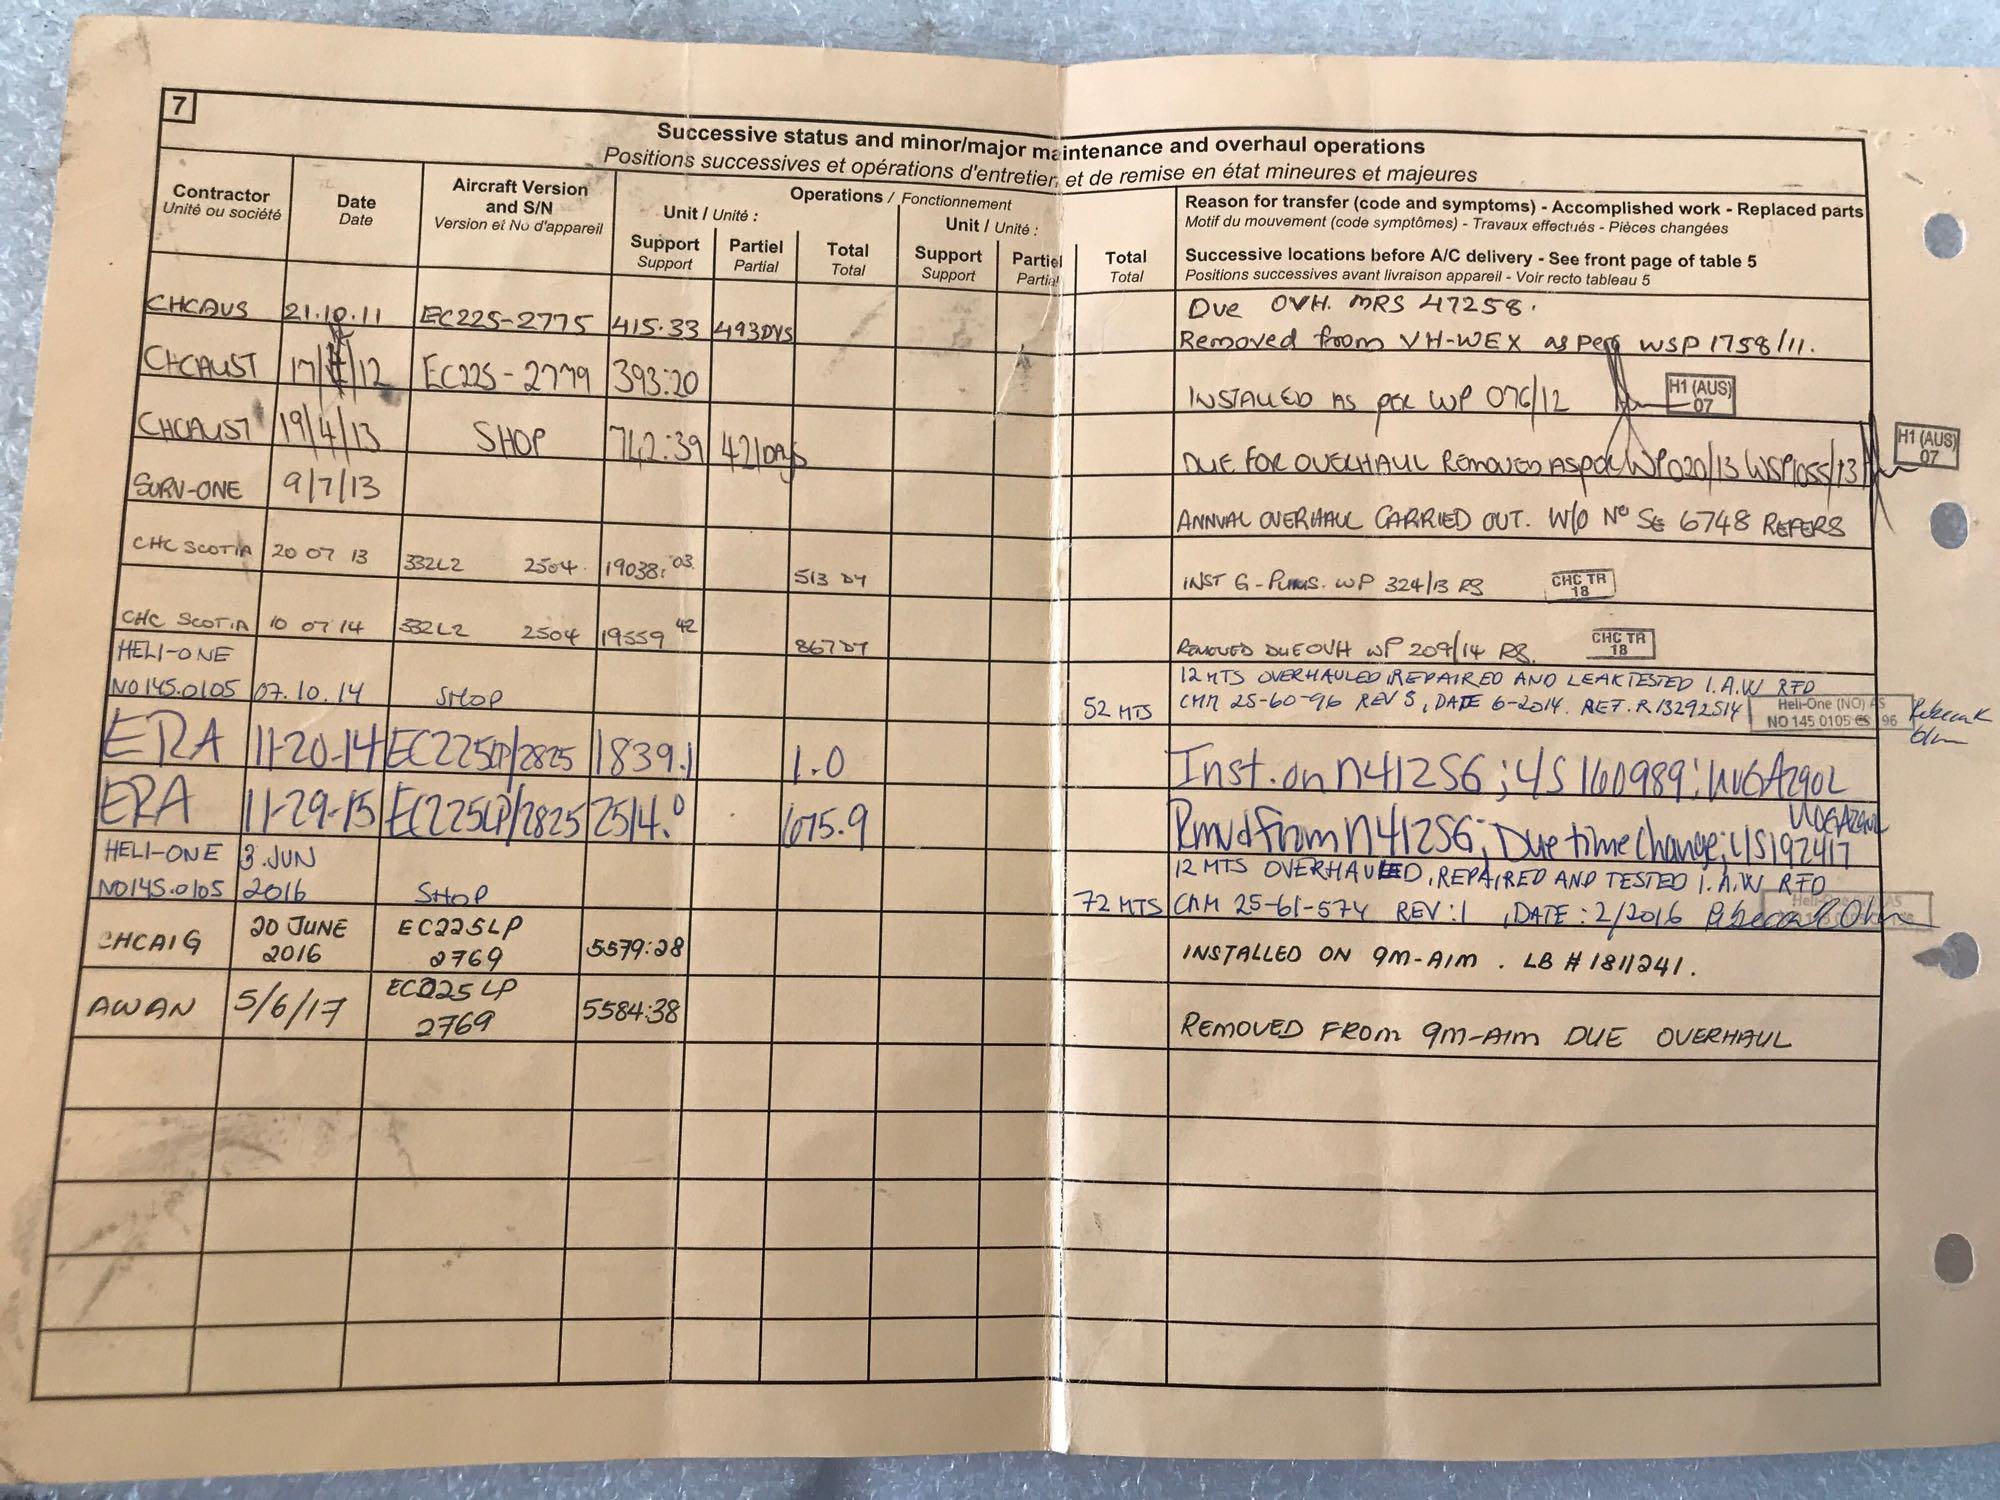 7
Successive status and minor/major maintenance and overhaul operations
Positions successives et opérations d'entretien et de remise en état mineures et majeures
Contractor
Unité ou société
Date
Date
Aircraft Version
and S/N
Version et No d'appareil
Operations / Fonctionnement
Unit / Unité :
Support
Support
Partiel
Partial
Total
Total
Unit / Unité :
Support
Support
Partiel
Partial
Total
Total
Reason for transfer (code and symptoms) - Accomplished work - Replaced parts
Motif du mouvement (code symptômes) - Travaux effectués - Pièces changées
Successive locations before A/C delivery - See front page of table 5
Positions successives avant livraison appareil - Voir recto tableau 5
CHCAUS 21.10.11 EC225-2775 415.33 493DYS Due OVH. MRS 47258.
Removed from VH-WEX as per WSP 1758/11.
CHCAUST 17/ /12 EC225-2779 393:20 INSTALLED AS PER WP 076/12
H1 (AUS)
07
CHCAUST 19/4/13 SHOP 742:39 421DAYS DUE FOR OVERHAUL REMOVED AS PER WP020/13 WSP1055/13
H1 (AUS)
07
SURV-ONE 9/7/13 ANNUAL OVERHAUL CARRIED OUT. W/O No SE 6748 REFERS
CHC SCOTIA 20 07 13 332L2 2504 19038:03 513 DY INST G-PUMS. WP 324/13 RS
CHC TR
18
CHC SCOTIA 10 07 14 332L2 2504 19559 42 867 DY REMOVED DUE OVH WP 209/14 RS.
CHC TR
18
HELI-ONE 12 MTS OVERHAULED, REPAIRED AND LEAKTESTED I.A.W RFD
NO145.0105 07.10.14 SHOP 52 MTS CMM 25-60-96 REV 5, DATE 6-2014. REF. R13292514
Heli-One (NO) AS
NO 145 0105 96
ERA 11-20-14 EC225LP/2825 1839.1 1.0 Inst. on N412SG; L/S 160989; UUGAZ90L
ERA 11-29-15 EC225LP/2825 2514.0 675.9 Rmvd From N412SG; Due time change; L/S192417
HELI-ONE 3.JUN 12 MTS OVERHAULED, REPAIRED AND TESTED I.A.W RFD
NO145.0105 2016 SHOP 72 MTS CMM 25-61-574 REV:1 ,DATE:2/2016
CHCAIG 20 JUNE 2016 EC225LP 2769 5579:28 INSTALLED ON 9M-AIM. LB # 1811241.
AWAN 5/6/17 EC225LP 2769 5584:38 REMOVED FROM 9M-AIM DUE OVERHAUL